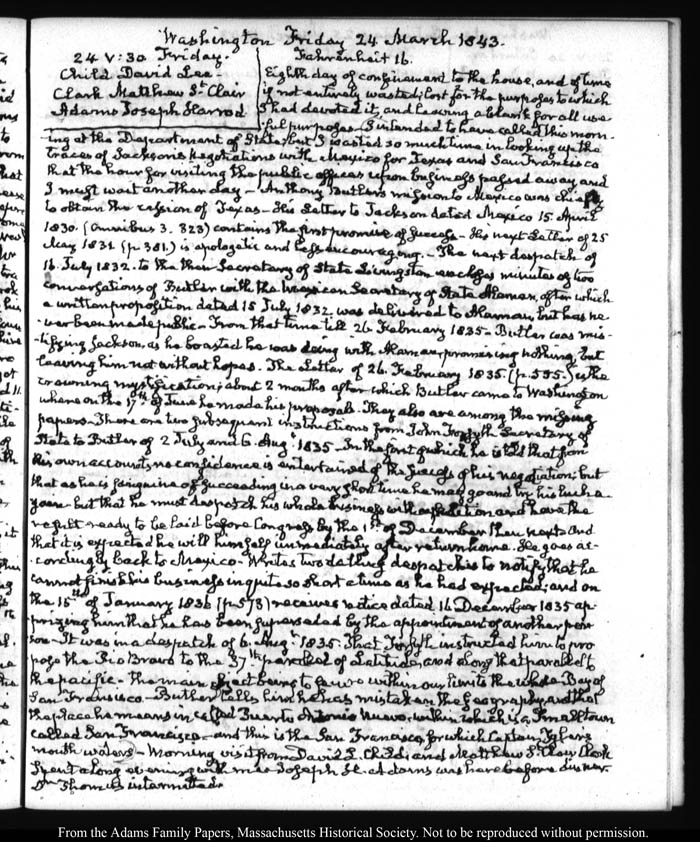 Washington Friday 24 March 1843.
24 V: 30 Friday.
Child David Lee
Clark Matthew St Clair
Adams Joseph Harrod
Fahrenheit 16.
Eighth day of confinement to the house, and of time
if not entirely wasted; lost for the purposes to which
I had devoted it, and leaving a blank for all use-
ful purposes. I intended to have called this morn-
ing at the Department of State, but I wasted so much time in looking up the
traces of Jackson's negotiations with Mexico for Texas and San Francisco
that the hour for visiting the public offices upon business passed away, and
I must wait another day— Anthony Butler's mission to Mexico was chiefly
to obtain the cession of Texas— His Letter to Jackson dated Mexico 15. April
1830. (Omnibus 3. 323) contains the first promise of success— His next Letter of 25
May 1831. (p 381.) is apologetic and less encouraging.— The next despatch of
16. July 1832. to the then Secretary of State Livingston encloses minutes of two
conversations of Butler with the Mexican Secretary of State Alaman, after which
a written proposition dated 15 July 1832. was delivered to Alaman, but has ne-
ver been made public— From that time till 26 February 1835— Butler was mis-
tifying Jackson, as he boasted he was doing with Alaman promising nothing, but
leaving him not without hopes. The Letter of 26. February 1835. (p. 555.) is the
crowning mystification; about 2 months after which Butler came to Washington
where on the 17th of June he made his proposals. They also are among the missing
papers— There are two subsequent instructions from John Forsyth Secretary of
State to Butler of 2 July and 6. Augt 1835— In the first of which he is told that from
his own accounts, no confidence is entertained of the success of his negotiation; but
that as he is sanguine of succeeding in a very short time he may go and try his luck a-
gain— but that he must despatch his whole business with expedition and have the
result ready to be laid before Congress by the 1st of December then next. And
that it is expected he will himself immediately after return home. He goes ac-
cordingly back to Mexico— Writes two dallying despatches to notify that he
cannot finish his business in quite so short a time as he had expected; and on
the 15th of January 1836 (p 573) receives notice dated 16 December 1835 ap-
prizing him that he has been superseded by the appointment of another per-
son— It was in a despatch of 6. Augt 1835. That Forsyth instructed him to pro-
pose the Rio Bravo to the 37th parallel of Latitude, and along that parallel to
the pacific— the main object being to secure within our limits the whole Bay of
San Francisco— Butler tells him he has mistaken the Geography and that
the place he means is called Puerto Antonio Nuevo, within which is a small town
called San Francisco— and this is the San Francisco for which Captain Tyler's
mouth waters— Morning visit from David L. Child and Matthew St Clair Clark
spent a long evening with me. Joseph H. Adams was here before dinner.
Dr Thomas intermitted.
From the Adams Family Papers, Massachusetts Historical Society. Not to be reproduced without permission.